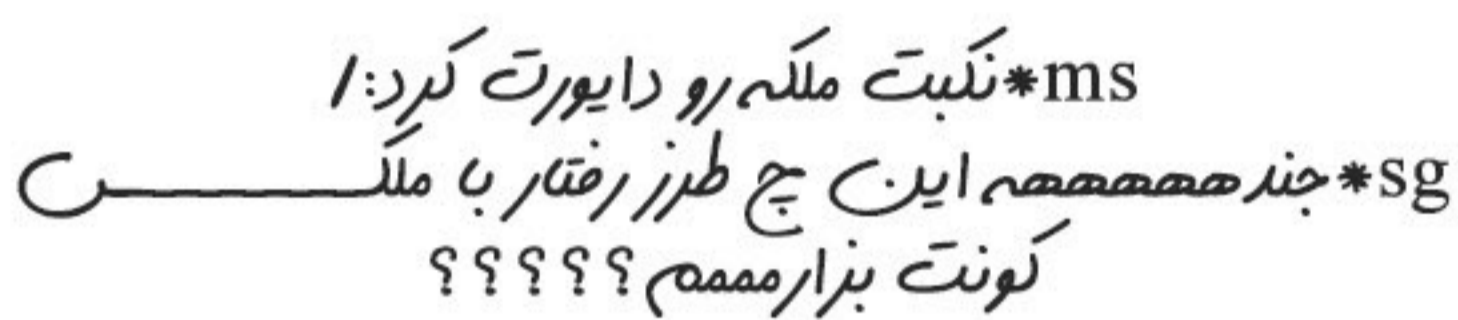 ms*نکبت ملکه رو دایورت کرد:/
sg*جندهههههه این چ طرز رفتار با ملکـــــــس
کونت بزارمممم؟؟؟؟؟